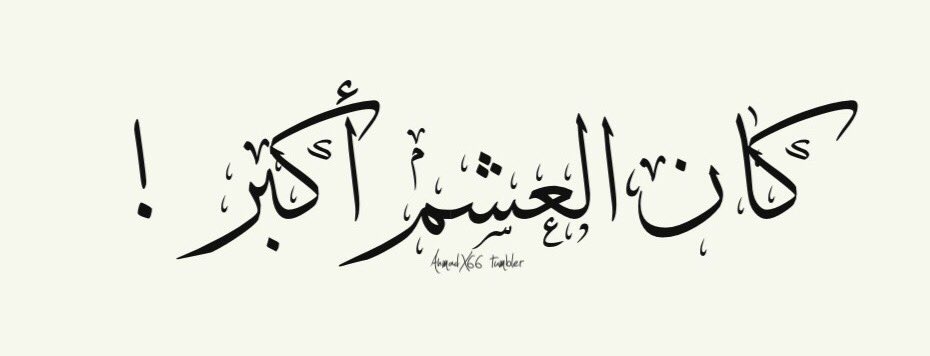 كان العشم أكبر !
AhmadX66 tumbler